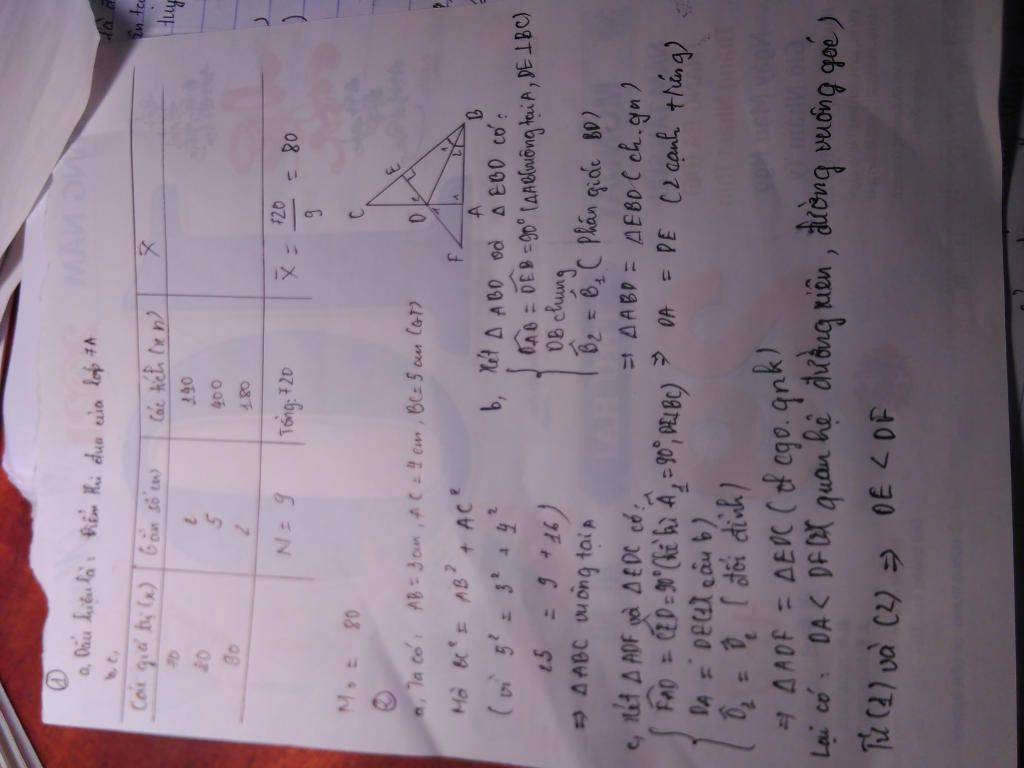 ①
a, Dấu hiệu là: Điểm thi đua của lớp 7A
b, c,
Các giá trị (x) | Tần số (n) | Các tích (x n) | X̄
70 | 2 | 140
80 | 5 | 400
90 | 2 | 180
N = 9 | Tổng: 720 | X̄ = 720/9 = 80
M₀ = 80
②
a, Ta có: AB = 3 cm, AC = 4 cm, BC = 5 cm (GT)
Mà BC² = AB² + AC²
(vì 5² = 3² + 4²
25 = 9 + 16)
⇒ △ABC vuông tại A
C
E
D
F
A
B
b, Xét △ ABD và △ EBD có:
DAB = DEB = 90° (△ABC vuông tại A, DE⊥BC)
DB chung
B₂ = B₁ ( Phân giác BD)
⇒ △ABD = △EBD ( ch.gn)
⇒ DA = DE (2 cạnh tương)
c, Xét △ADF và △EDC có:
FAD = CED = 90° (kề bù A₁ = 90°, DE⊥BC)
DA = DE (câu b)
D₂ = D₂ ( đối đỉnh)
⇒ △ADF = △EDC ( cgv. gnk)
Lại có: DA < DF quan hệ đường xiên, đường vuông góc)
Từ (1) và (2) ⇒ DE < DF